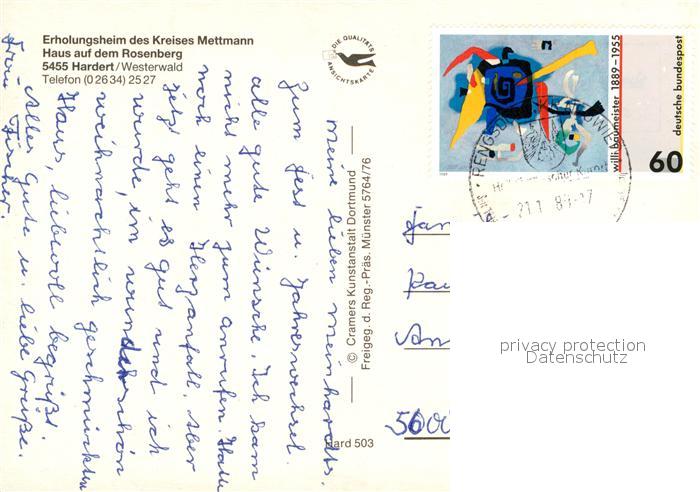 Erholungsheim des Kreises Mettmann
Haus auf dem Rosenberg
5455 Hardert/Westerwald
Telefon (0 26 34) 25 27
DIE QUALITÄTS
ANSICHTSKARTE
willi baumeister 1889–1955
deutsche bundespost
60
RENGSD
21.1 89-17
meine lieben meinhardts.
zum fest u. Jahreswechsel
alle gute Wünsche. Ich kam
nicht mehr zum anrufen. Hatte
noch einen Herzanfall. Aber
jetzt geht es gut und ich
wurde, im wunderschön
weihnachtlich geschmückten
Haus, liebvoll begrüßt.
Alles Gute u. liebe Grüße.
Frau Fischer
© Cramers Kunstanstalt Dortmund
Freigeg. d. Reg.-Präs. Münster 5764/76
Hard 503
5600
privacy protection
Datenschutz